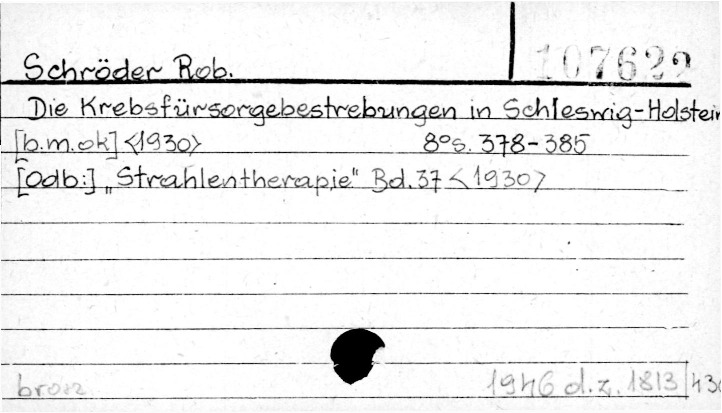 107622
Schröder Rob.
Die Krebsfürsorgebestrebungen in Schleswig-Holstein
[b.m.ok] <1930> 8°s. 378-385
[Odb:] „Strahlentherapie" Bd. 37 <1930>
brosz. 1946 d.z. 1813/430